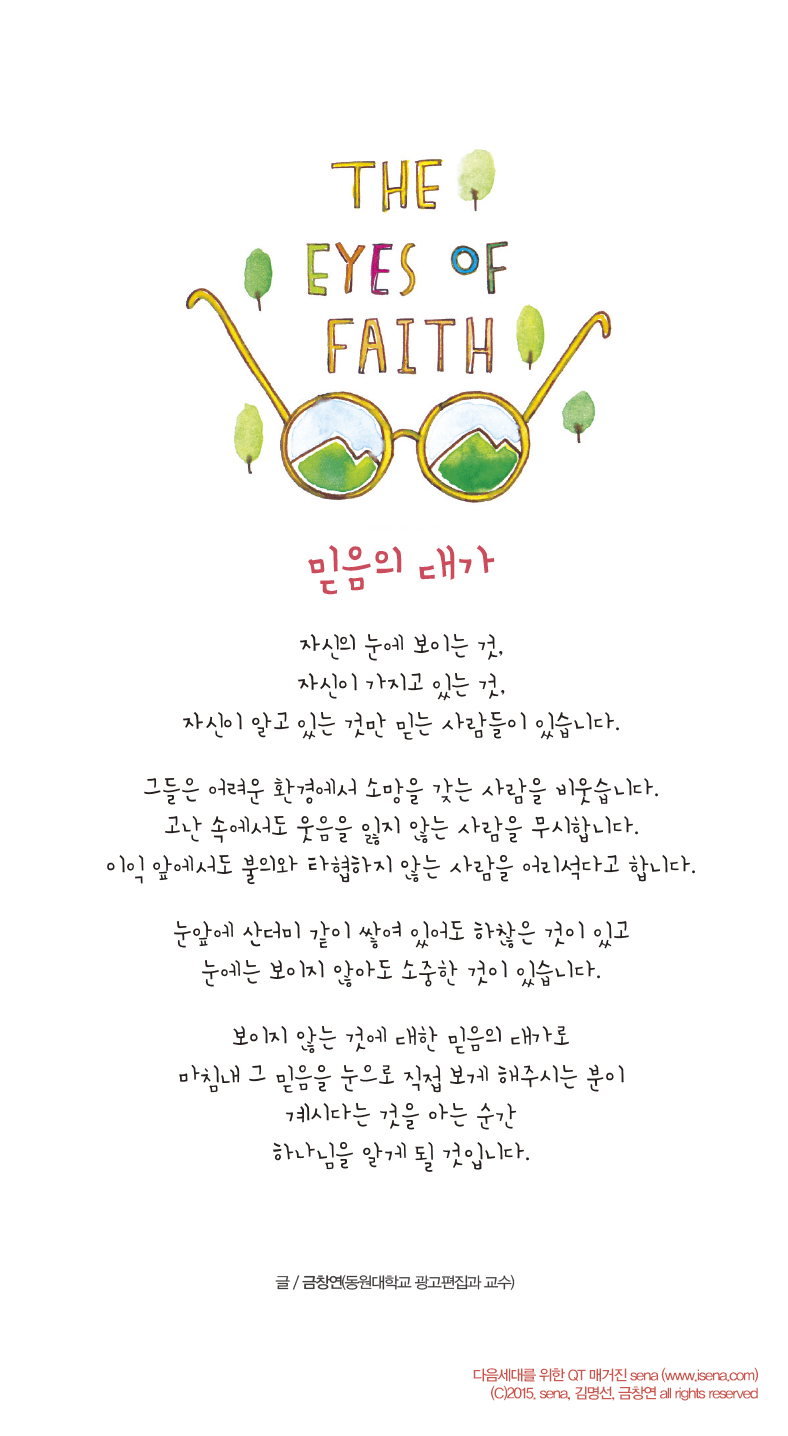 THE
EYES OF
FAITH
믿음의 대가
자신의 눈에 보이는 것,
자신이 가지고 있는 것,
자신이 알고 있는 것만 믿는 사람들이 있습니다.
그들은 어려운 환경에서 소망을 갖는 사람을 비웃습니다.
고난 속에서도 웃음을 잃지 않는 사람을 무시합니다.
이익 앞에서도 불의와 타협하지 않는 사람을 어리석다고 합니다.
눈앞에 산더미 같이 쌓여 있어도 하찮은 것이 있고
눈에는 보이지 않아도 소중한 것이 있습니다.
보이지 않는 것에 대한 믿음의 대가로
마침내 그 믿음을 눈으로 직접 보게 해주시는 분이
계시다는 것을 아는 순간
하나님을 알게 될 것입니다.
글 / 금창연(동원대학교 광고편집과 교수)
다음세대를 위한 QT 매거진 sena (www.isena.com)
(C)2015, sena, 김명선, 금창연 all rights reserved